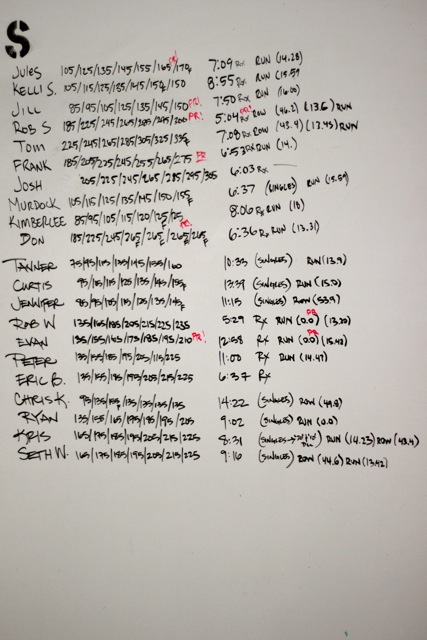 S
Jules 105/125/135/145/155/165/170F PR! 7:09 Rx RUN (14.28)
KELLI S. 105/115/125/135/145/150F/150 8:55 Rx RUN (15.59
JILL 85/95/105/125/135/145/150 PR! 7:50 Rx RUN (16.00)
ROB S 185/225/245/265/285/295/300 PR! 5:04 Rx PR! ROW (46.2) (13.6) RUN
TOM 225/245/265/285/305/325/335F 7:08 Rx ROW (43.4) (13.45) RUN
FRANK 185/205/225/245/255/265/275 PR 6:53 Rx RUN (14.)
JOSH 205/225/245/265/285/295/305 6:03 Rx
MURDOCK 105/115/125/135/145/150/155F 6:37 (SINGLES) RUN (15.59)
KIMBERLEE 85/95/105/115/120/125F/125F 8:06 Rx RUN (18)
DON 185/225/245/265F/265F/265F/265F PR! 6:36 Rx RUN (13.31)
TANNER 75/95/115/135/145/155/160 10:33 (SINGLES) RUN (13.9)
CURTIS 95/105/115/125/135/145/155F 13:39 (SINGLES) RUN (15.0)
JENNIFER 85/95/105/115/125/135/145F 11:15 (SINGLES) ROW (53.9)
ROB W 135/165/185/205/215/225/235 5:29 Rx RUN (0.0) PR (13.20)
EVAN 135/155/145/175/185/195/210 PR! 12:58 Rx RUN (0.0) PR (15.42)
PETER 135/155/185/195/205/115/225 11:00 Rx RUN (14.47)
ERIC B. 135/155/185/195/205/215/225 6:37 Rx
CHRIS K. 95/135/155F/135/135/135/135 14:22 (SINGLES) ROW (49.8)
RYAN 135/155/165/175/185/195/205 9:02 (SINGLES) RUN (0.0)
KRIS 165/175/185/195/205/215/225 8:31 (SINGLES→ RUN (14.23) ROW (43.4)
SETH W. 165/175/185/195/205/215/225 9:16 (SINGLES) ROW (44.6) RUN (13.42)